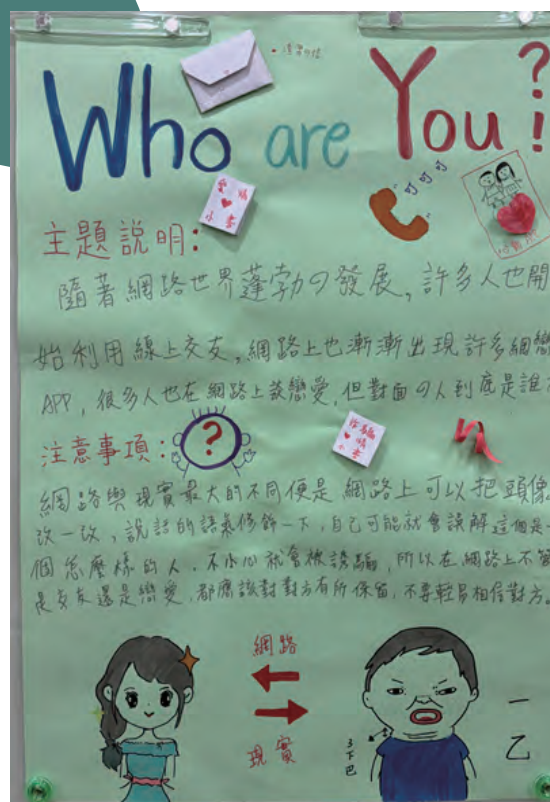 Who are You?!
叮叮叮
愛情
小書
主題說明：
隨著網路世界蓬勃の發展，許多人也開
始利用線上交友，網路上也漸漸出現許多網戀
APP，很多人也在網路上談戀愛，但對面の人到底是誰
注意事項：
?
詐騙
情書
網路與現實最大的不同便是網路上可以把頭像
改一改，說話的語氣修飾一下，自己可能就會誤解這個是
個怎麼樣的人，不小心就會被誘騙，所以在網路上不管
是交友還是戀愛，都應該對對方有所保留，不要輕易相信對方。
網路
現實
3下巴
一
乙